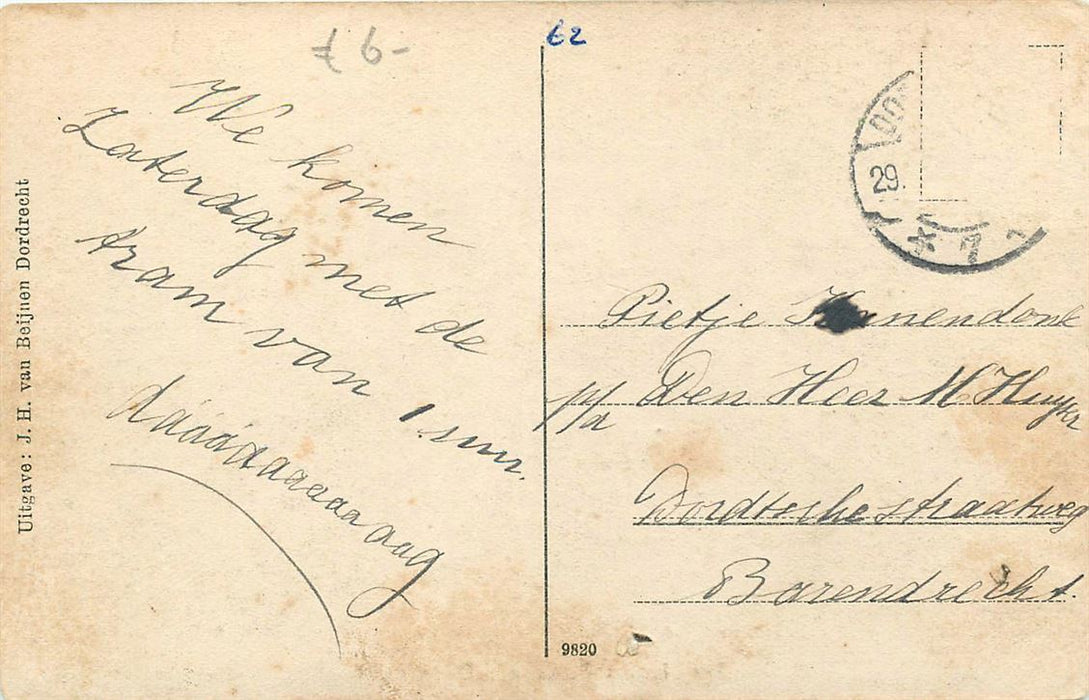 f 6-
62
We komen
Zaterdag met de
tram van 1 uur.
dááááaaaaaaaag
Uitgave: J. H. van Beijnen Dordrecht
DO
29.
* 7
Pietje
p/a Den Heer M Huyzer
Dordtschestraatweg
Barendrecht.
9820